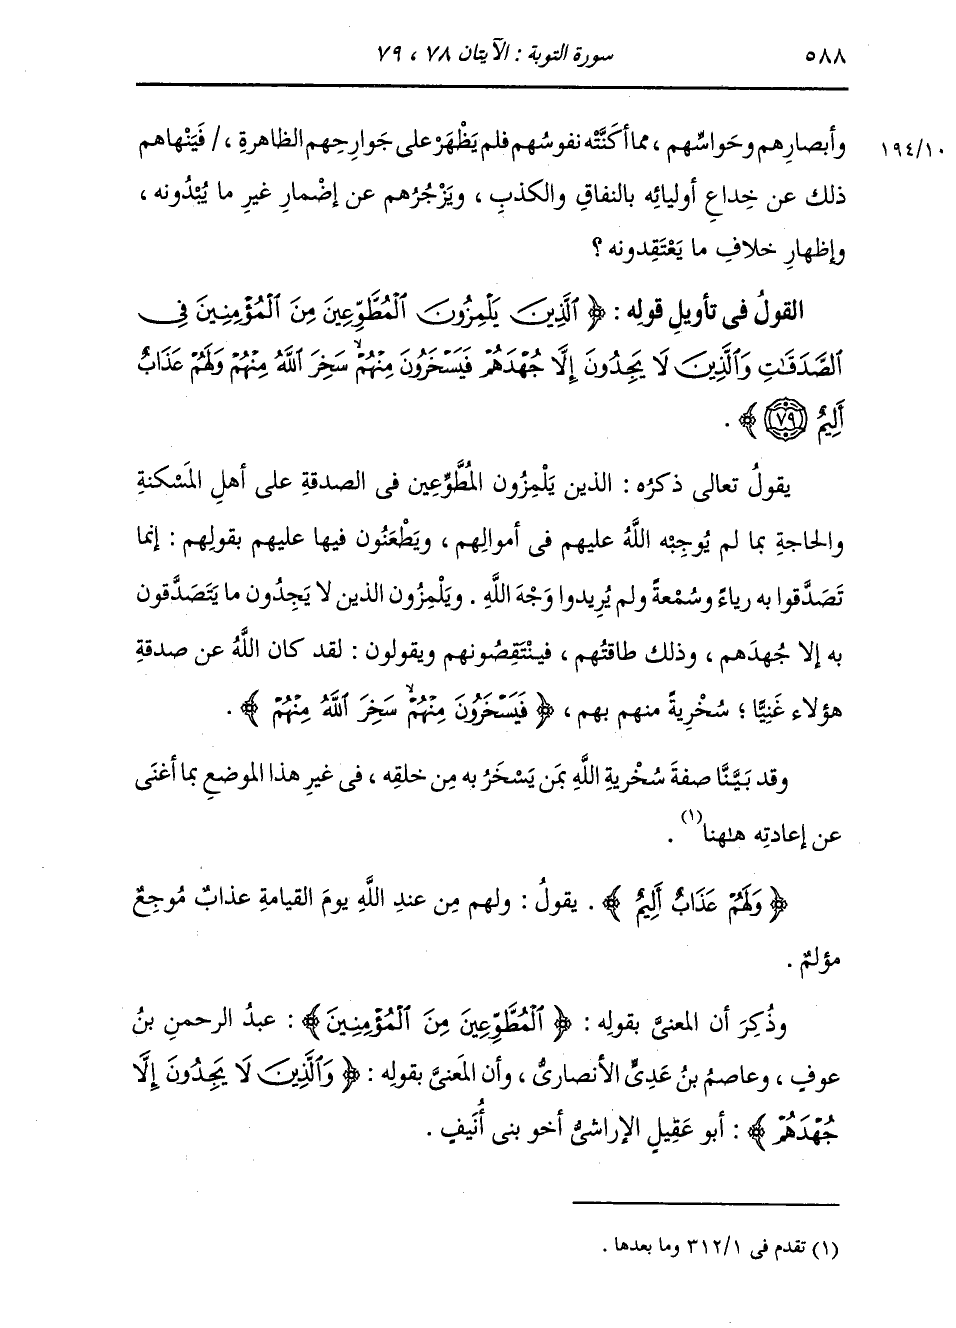 ٥٨٨ سورة التوبة : الآيتان ٧٨ ، ٧٩
وأبصارِهم وحَواسِّهم ، مما أكَنَّتْه نفوسُهم فلم يَظْهَرْ على جَوارِحِهم الظاهرةِ ، / فَيَنْهاهم ١٩٤/١٠
ذلك عن خِداعِ أوليائِه بالنفاقِ والكذبِ ، ويَزْجُرُهم عن إضْمارِ غيرِ ما يُبْدُونه ،
وإظهارِ خلافِ ما يَعْتَقِدونه ؟
القولُ فى تأويلِ قولِه : ﴿ ٱلَّذِينَ يَلْمِزُونَ ٱلْمُطَّوِّعِينَ مِنَ ٱلْمُؤْمِنِينَ فِى
ٱلصَّدَقَٰتِ وَٱلَّذِينَ لَا يَجِدُونَ إِلَّا جُهْدَهُمْ فَيَسْخَرُونَ مِنْهُمْ ۙ سَخِرَ ٱللَّهُ مِنْهُمْ وَلَهُمْ عَذَابٌ
أَلِيمٌ ٧٩ ﴾ .
يقولُ تعالى ذكرُه : الذين يَلْمِزُون المُطَّوِّعِين فى الصدقةِ على أهلِ المَسْكنةِ
والحاجةِ بما لم يُوجِبْه اللَّهُ عليهم فى أموالِهم ، ويَطْعَنُون فيها عليهم بقولِهم : إنما
تَصَدَّقوا به رياءً وسُمْعةً ولم يُرِيدوا وَجْهَ اللَّهِ . ويَلْمِزُون الذين لا يَجِدُون ما يَتَصَدَّقون
به إلا جُهدَهم ، وذلك طاقتُهم ، فينْتَقِصُونهم ويقولون : لقد كان اللَّهُ عن صدقةِ
هؤلاء غَنِيًّا ؛ سُخْرِيةً منهم بهم ، ﴿ فَيَسْخَرُونَ مِنْهُمْ ۙ سَخِرَ ٱللَّهُ مِنْهُمْ ﴾ .
وقد بَيَّنَّا صفةَ سُخْريةِ اللَّهِ بمَن يَسْخَرُ به مِن خلقِه ، فى غيرِ هذا الموضعِ بما أغنَى
عن إعادتِه هٰهنا(١) .
﴿ وَلَهُمْ عَذَابٌ أَلِيمٌ ﴾ . يقولُ : ولهم مِن عندِ اللَّهِ يومَ القيامةِ عذابٌ مُوجِعٌ
مؤلمٌ .
وذُكِرَ أن المَعنىَّ بقولِه : ﴿ ٱلْمُطَّوِّعِينَ مِنَ ٱلْمُؤْمِنِينَ ﴾ : عبدُ الرحمنِ بنُ
عوفٍ ، وعاصمُ بنُ عَدِىٍّ الأنصارىُّ ، وأن المَعنىَّ بقولِه : ﴿ وَٱلَّذِينَ لَا يَجِدُونَ إِلَّا
جُهْدَهُمْ ﴾ : أبو عَقِيلٍ الإراشىُّ أخو بنى أُنَيفٍ .
(١) تقدم فى ٣١٢/١ وما بعدها .